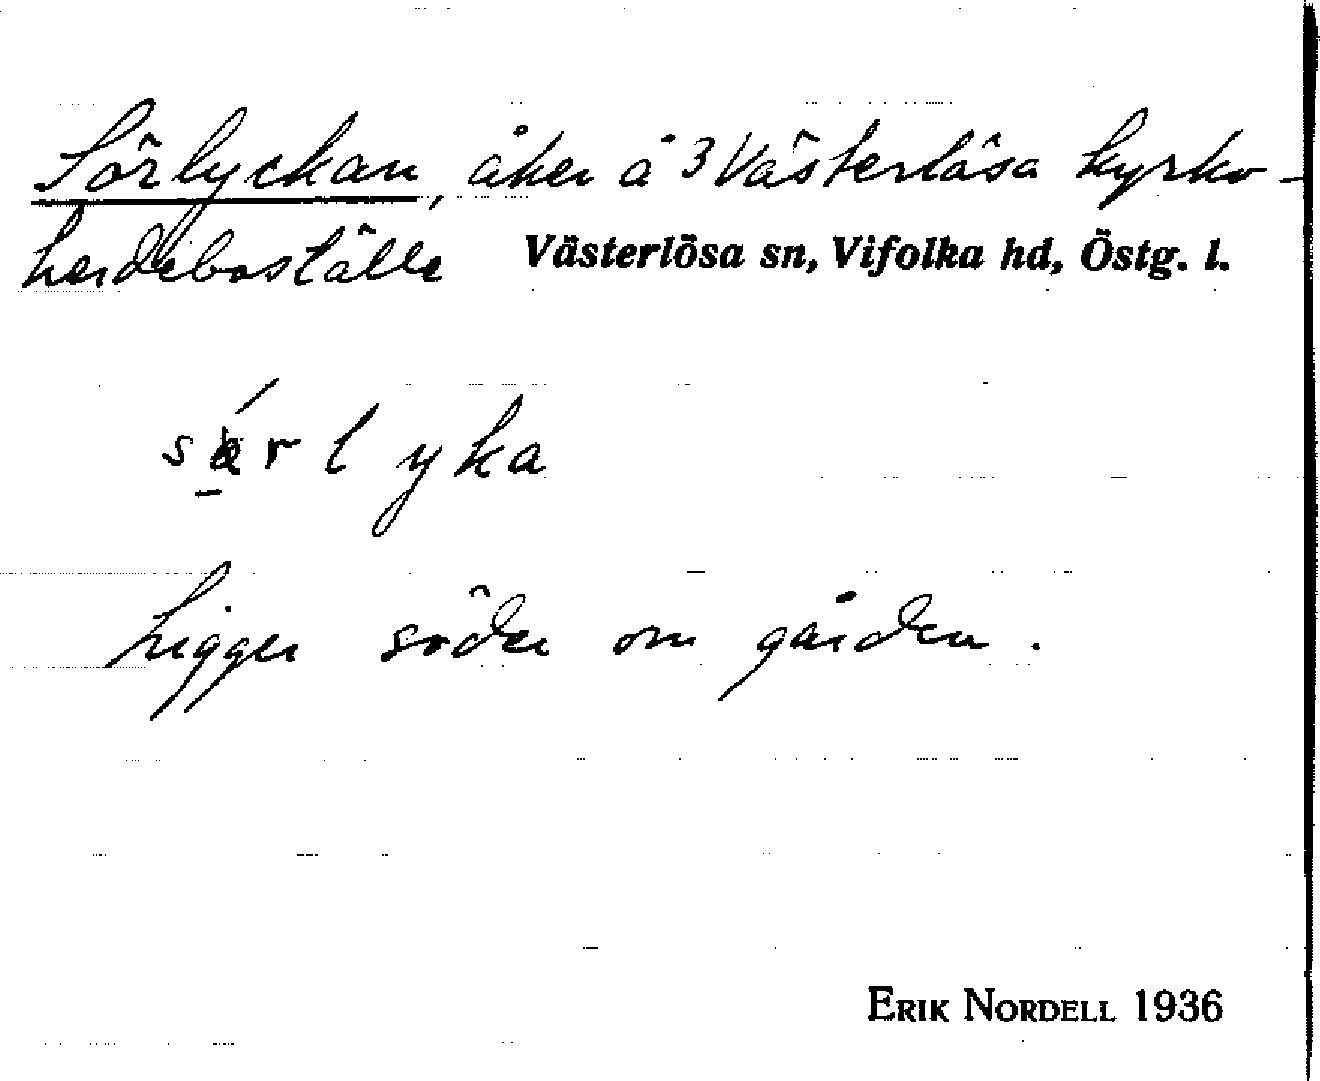 Sörlyckan, åker å 3 Västerlösa kyrko-
herdeboställe Västerlösa sn, Vifolka hd, Östg. l.
lyka
Ligger söder om gården.
ERIK NORDELL 1936